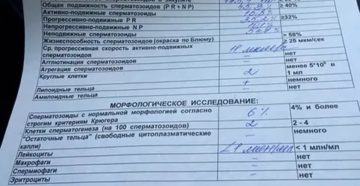 Общая подвижность сперматозоидов (P R + N P)
Активно-подвижные сперматозоиды
Прогрессивно-подвижные P R ≥32%
Непрогрессивно-подвижные N P
Неподвижные сперматозоиды
Жизнеспособность сперматозоидов (окраска по Блюму) 58%
Ср. прогрессивная скорость активно-подвижных сперматозоидов ≥ 25 мкм/сек
Агглютинация сперматозоидов – нет
Агрегация сперматозоидов – нет
Круглые клетки 2 менее 5*10⁶ в 1 мл
Липоидные тельца + немного
Амилоидные тельца – нет
МОРФОЛОГИЧЕСКОЕ ИССЛЕДОВАНИЕ:
Сперматозоиды с нормальной морфологией согласно строгим критериям Крюгера 6% 4% и более
Клетки сперматогенеза (на 100 сперматозоидов) 2 2 - 4
"Остаточные тельца" (свободные цитоплазматические капли) немного
Лейкоциты <1 млн/мл < 1 млн/мл
Макрофаги – нет
Спермиофаги – нет
Эритроциты нет